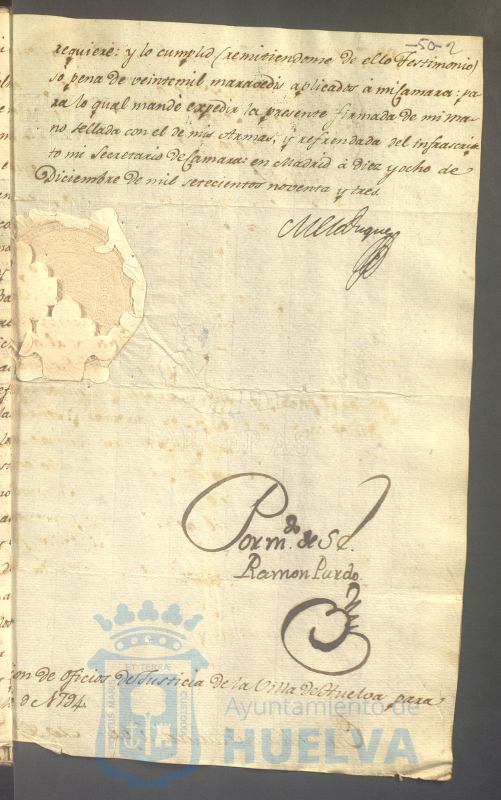 -50-2
requiere: y lo cumplid (remitiendome de ello Testimonio)
so pena de veintemil maravedis aplicados à mi Camara: pa-
ra lo qual mandé expedir la presente firmada de mi ma-
no sellada con el de mis Armas, y refrendada del infrascrip-
to mi Secretario de Camara: en Madrid à diez y ocho de
Diciembre de mil setecientos noventa y tres.
Por m.do de S E.
Ramon Pardo.
ion de oficios de Justicia de la Villa de Huelva para
de 1794.
Ayuntamiento de
HUELVA